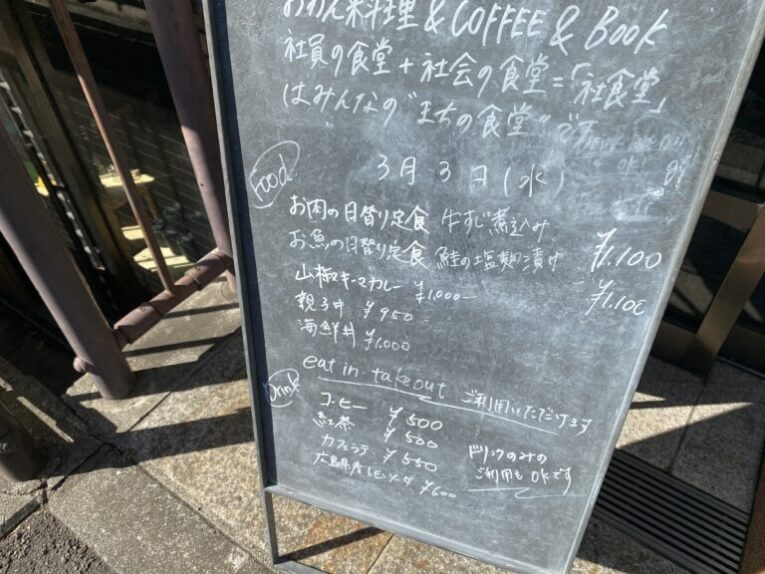 おわん料理 & COFFEE & BOOK
社員の食堂 + 社会の食堂 =「社食堂」
はみんなの"まちの食堂"です
3月3日(水)
Food
お肉の日替り定食 牛すじ煮込み ¥1.100
お魚の日替り定食 鮭の塩麹漬け ¥1.100
山椒キーマカレー ¥1.000-
親子丼 ¥950
海鮮丼 ¥1.000
eat in・takeout ご利用いただけます
Drink
コーヒー ¥500
紅茶 ¥500
カフェラテ ¥550
広島県産レモンソーダ ¥600
ドリンクのみの
ご利用も OKです